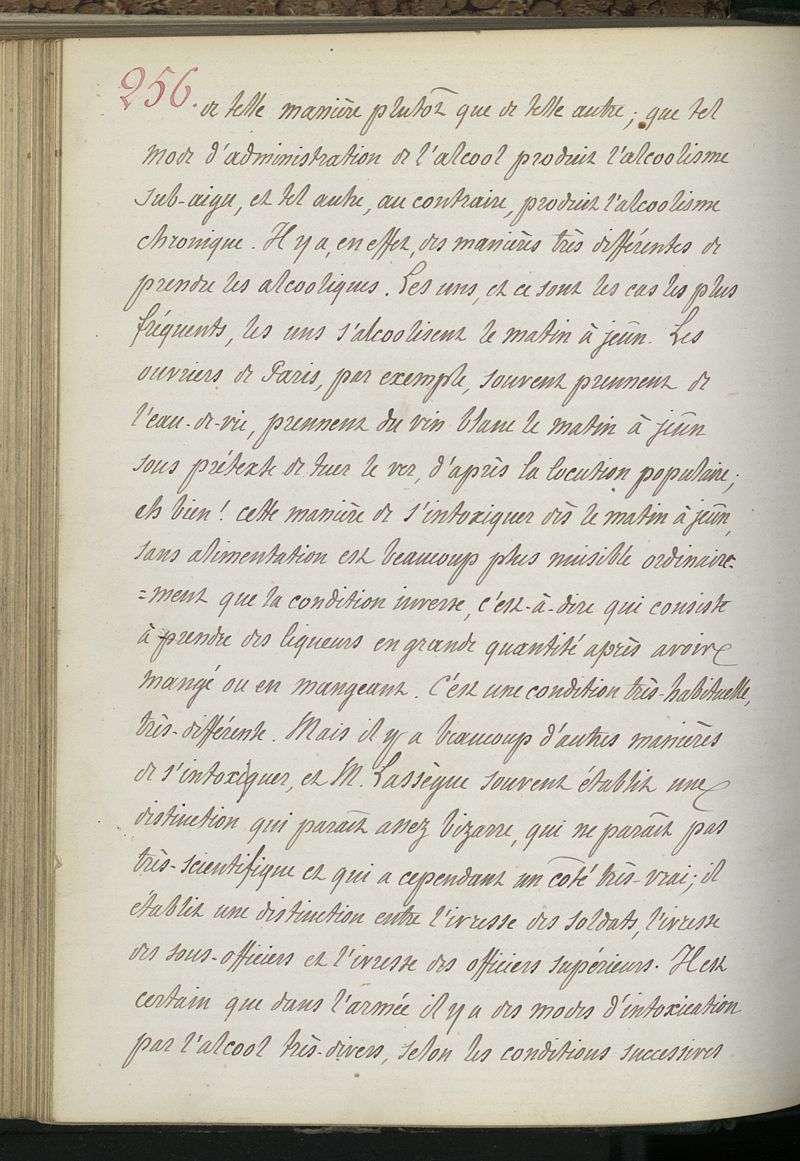 256.
de telle manière plutôt que de telle autre; que tel
mode d'administration de l'alcool produit l'alcoolisme
sub-aigu, et tel autre, au contraire, produit l'alcoolisme
chronique. Il y a, en effet, des manières très différentes de
prendre les alcooliques. Les uns, et ce sont les cas les plus
fréquents, les uns s'alcoolisent le matin à jeûn. Les
ouvriers de Paris, par exemple, souvent prennent de
l'eau-de-vie, prennent du vin blanc le matin à jeûn
sous prétexte de tuer le ver, d'après la locution populaire;
eh bien! cette manière de s'intoxiquer dès le matin à jeûn,
sans alimentation est beaucoup plus nuisible ordinaire-
=ment que la condition inverse, c'est-à-dire qui consiste
à prendre des liqueurs en grande quantité après avoir
mangé ou en mangeant. C'est une condition très-habituelle,
très-différente. Mais il y a beaucoup d'autres manières
de s'intoxiquer, et M. Lassègue souvent établit une
distinction qui paraît assez bizarre, qui ne paraît pas
très-scientifique et qui a cependant un côté très-vrai; il
établit une distinction entre l'ivresse des soldats, l'ivresse
des sous-officiers et l'ivresse des officiers supérieurs. Il est
certain que dans l'armée il y a des modes d'intoxication
par l'alcool très-divers, selon les conditions successives